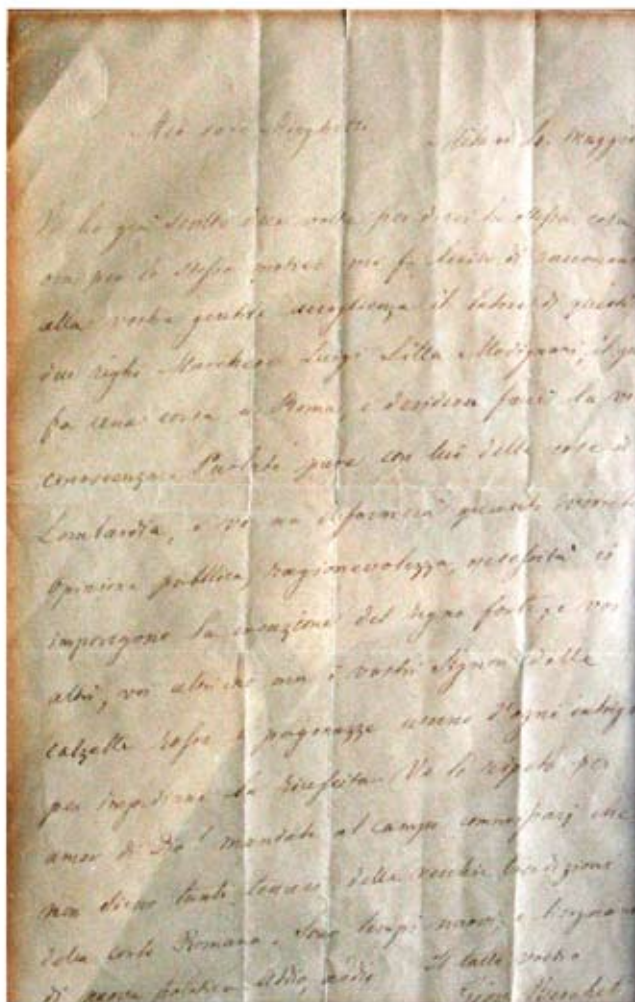 Mio caro Minghetti
Milano 4. Maggio
Vi ho già scritto una volta per dirvi la stessa cosa
ora per lo stesso motivo mi fo lecito di raccoman
alla vostra gentile accoglienza il latore di queste
due righe Marchese Luigi Litta Modignani, il qu
fa una corsa a Roma, e desidera fare la vo
conoscenza. Parlate pure con lui delle cose di
Lombardia, e vi informerà quanto vorrete
Opinione pubblica, ragionevolezza, necessità ci
impongono la creazione del regno forte, e voi
altri, voi altri no ma i vostri Signori dalle
calzette rosse e pagonazze usano d'ogni intrigo
per impedirne la riescita. Ve lo ripeto per
amor di Dio mandate al campo commissarj che
non sieno tanto teneri della vecchia tradizione
della corte Romana. Sono tempi nuovi, e bisogna
di nuova politica. Addio, addio Il tutto vostro
Berchet